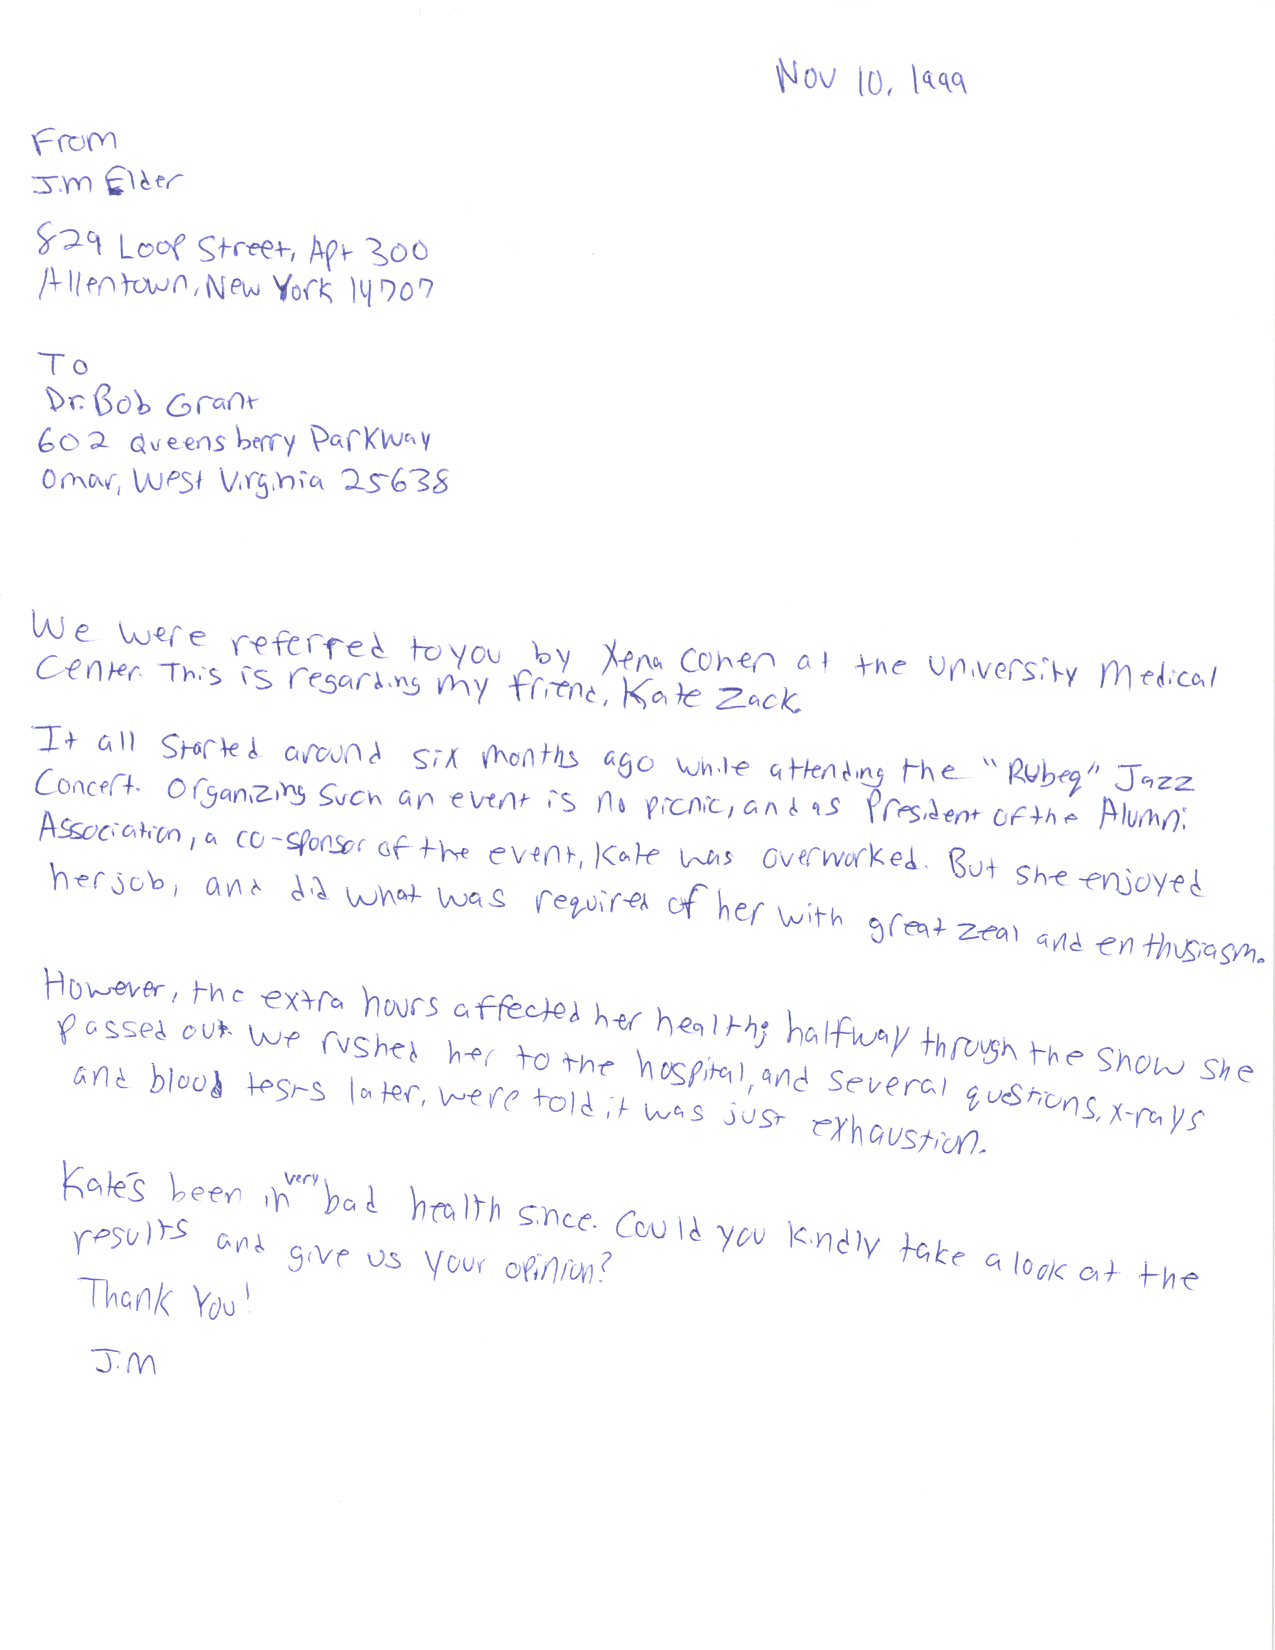 Nov 10, 1999
From
J.M Elder
829 Loop Street, Apt 300
Allentown, New York 14707
To
Dr. Bob Grant
602 Queensberry Parkway
Omar, West Virginia 25638
We were referred to you by Xena Cohen at the University Medical
Center. This is regarding my friend, Kate Zack.
It all started around six months ago while attending the "Rubeq" Jazz
Concert. Organizing such an event is no picnic, and as President of the Alumni
Association, a co-sponsor of the event, Kate was overworked. But she enjoyed
her job, and did what was required of her with great zeal and enthusiasm.
However, the extra hours affected her health; halfway through the show she
passed out. We rushed her to the hospital, and several questions, x-rays
and blood tests later, were told it was just exhaustion.
Kate's been in very bad health since. Could you kindly take a look at the
results and give us your opinion?
Thank You!
J.M